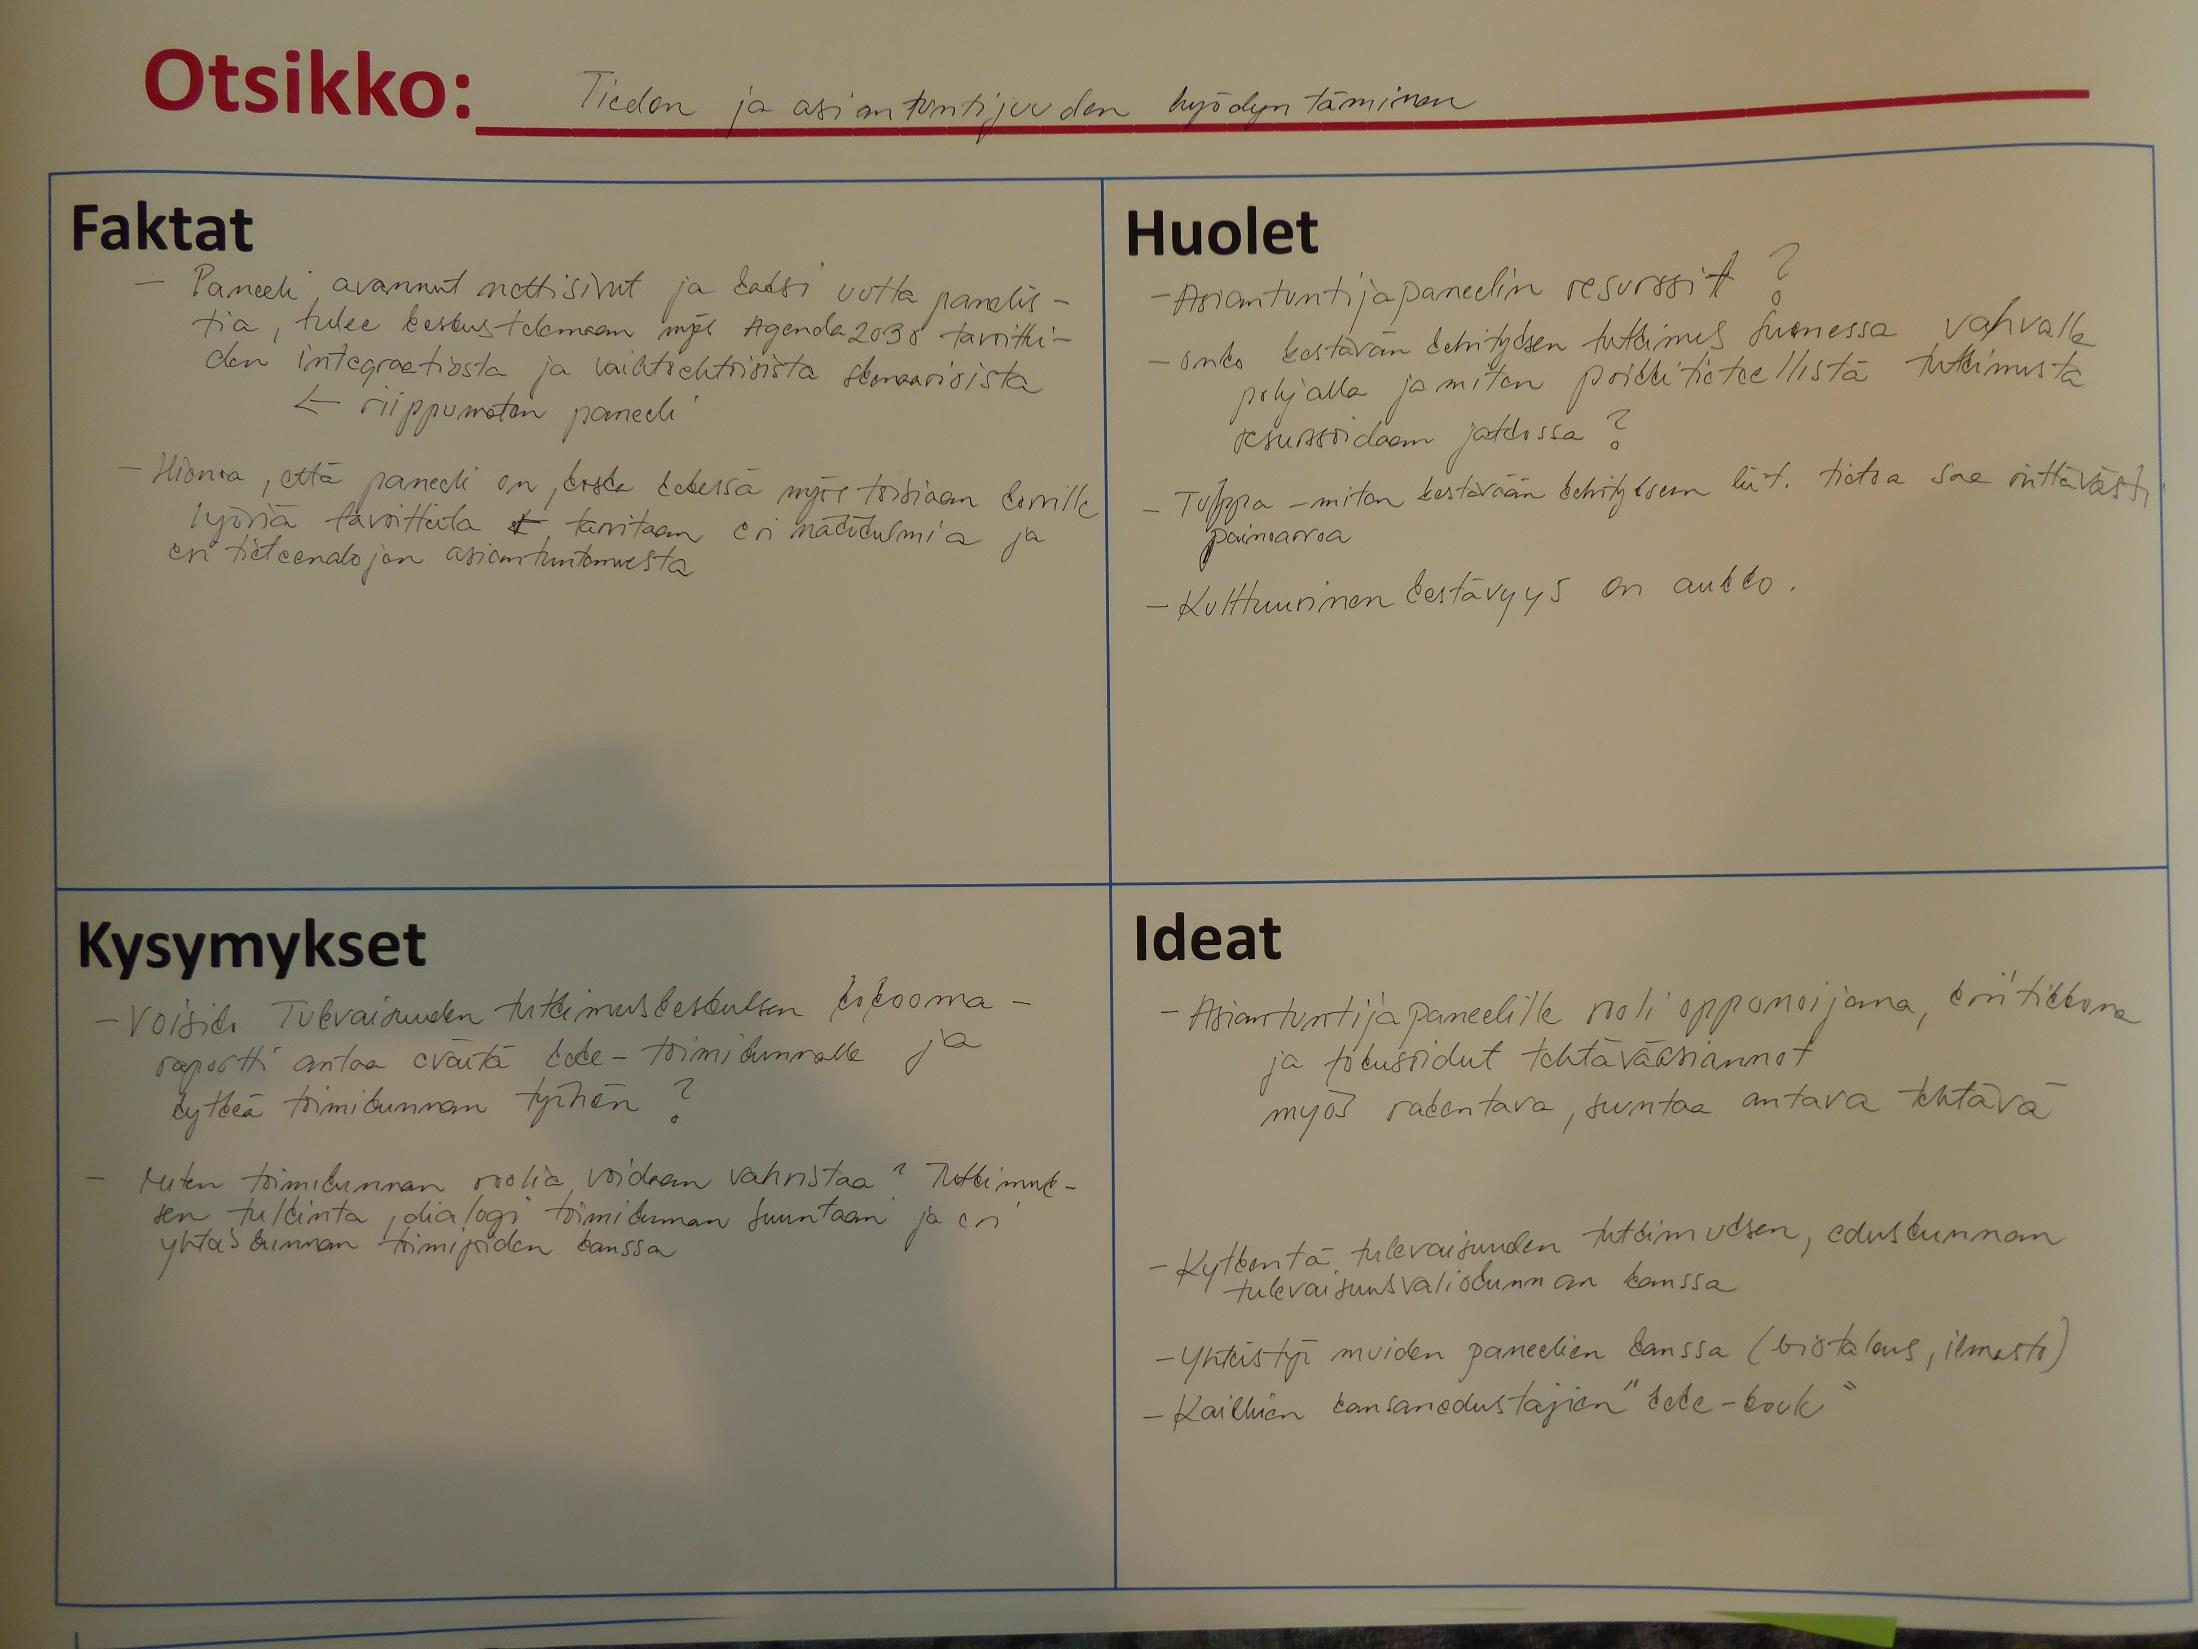 Otsikko: Tiedon ja asiantuntijuuden hyödyntäminen
Faktat
- Paneeli avannut nettisivut ja kaksi uutta panelis-
tia, tulee keskustelemaan myös Agenda2030 tavoittei-
den integraatiosta ja vaihtoehtoisista skenaarioista
← riippumaton paneeli
- Hienoa, että paneeli on, koska kekessä myös toisiaan korville
lyöviä tavoitteita ← tarvitaan eri näkökulmia ja
eri tieteenalojen asiantuntemusta
Huolet
- Asiantuntijapaneelin resurssit?
- Onko kestävän kehityksen tutkimus Suomessa vahvalla
pohjalla ja miten poikkitieteellistä tutkimusta
resurssoidaan jatkossa?
- Tulppa - miten kestävään kehitykseen liit. tietoa saa riittävästi
painoarvoa
- Kulttuurinen kestävyys on aukko.
Kysymykset
- Voisiko Tulevaisuuden tutkimuskeskuksen kokooma-
raportti antaa eväitä keke-toimikunnalle ja
kytkeä toimikunnan työhön?
- Miten toimikunnan roolia voidaan vahvistaa? Tutkimuk-
sen tulkinta, dialogi toimikunnan suuntaan ja eri
yhteiskunnan toimijoiden kanssa
Ideat
- Asiantuntijapaneelille rooli opponoijana, kriitikkona
ja fokusoidut tehtäväksiannot
myös rakentava, suuntaa antava tehtävä
- Kytkentä tulevaisuuden tutkimuksen, eduskunnan
tulevaisuusvaliokunnan kanssa
- Yhteistyö muiden paneelien kanssa (biotalous, ilmasto)
- Kaikkien kansanedustajien "keke-koulu"